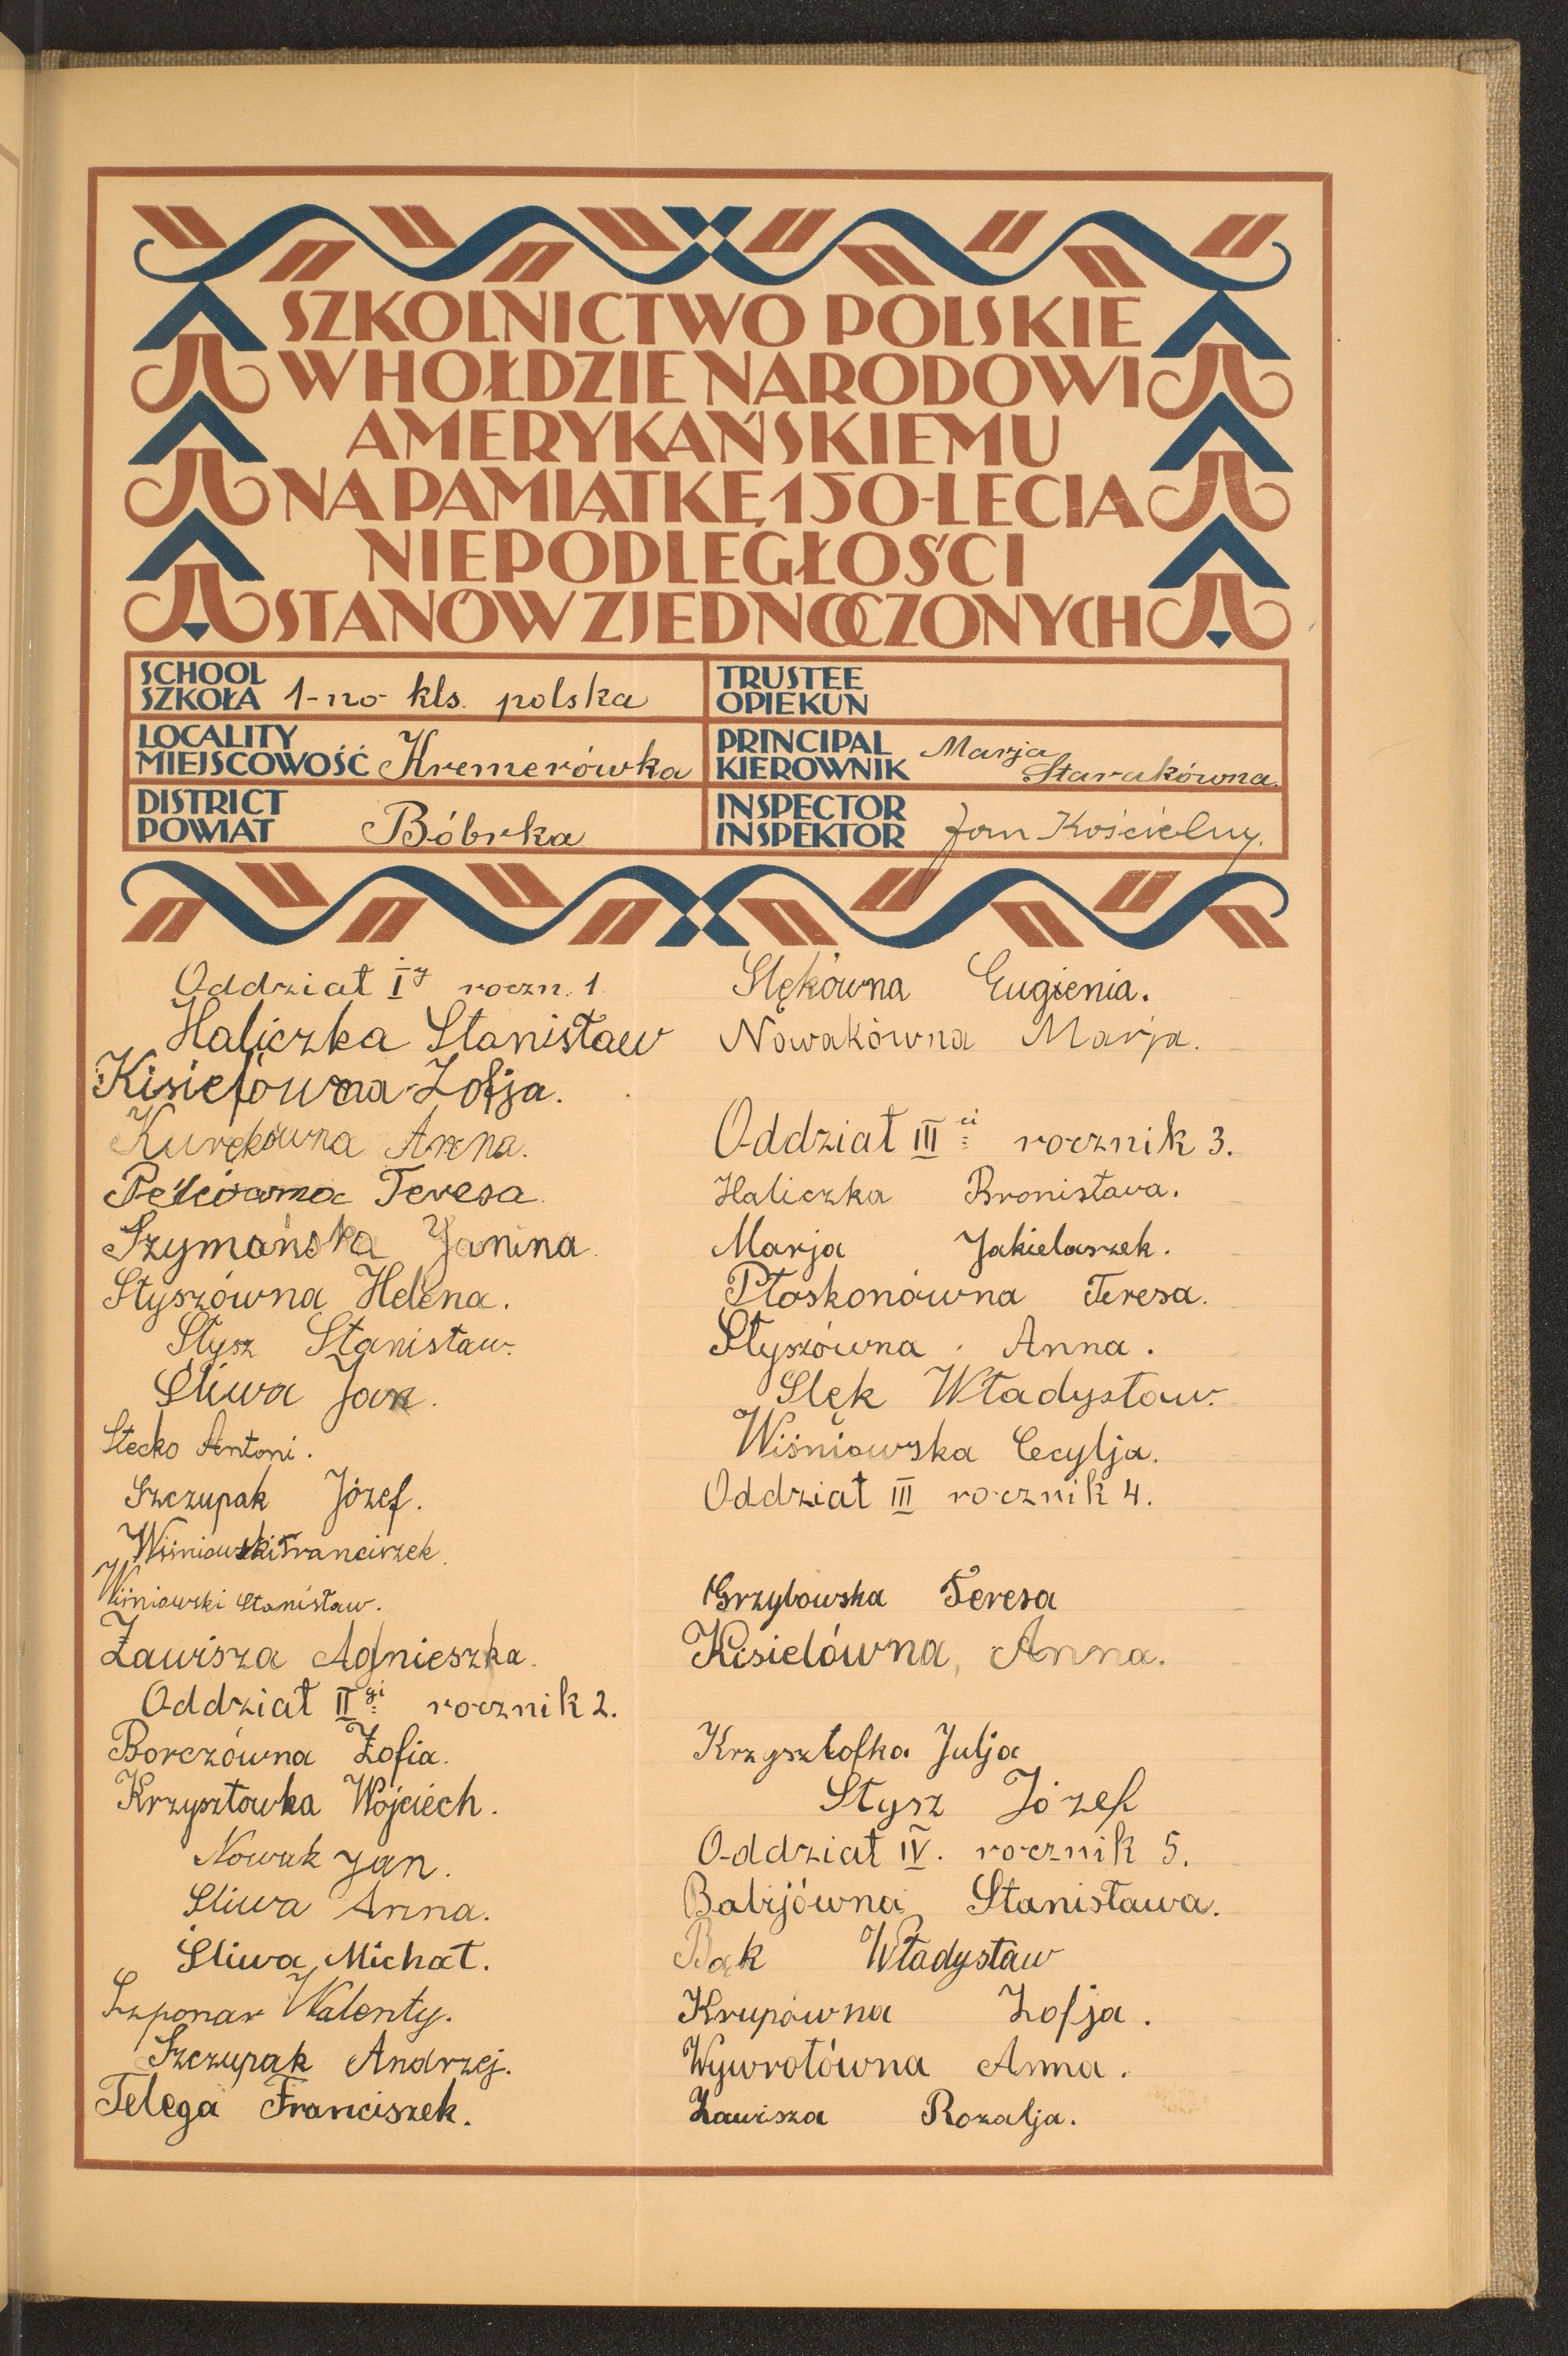 SZKOLNICTWO POLSKIE
W HOŁDZIE NARODOWI
AMERYKAŃSKIEMU
NA PAMIĄTKĘ 150-LECIA
NIEPODLEGŁOŚCI
STANÓW ZJEDNOCZONYCH
SCHOOL
SZKOŁA 1-no kls. polska
TRUSTEE
OPIEKUN
LOCALITY
MIEJSCOWOŚĆ Kremerówka
PRINCIPAL
KIEROWNIK Marja
Starakówna.
DISTRICT
POWIAT Bóbrka
INSPECTOR
INSPEKTOR Jan Kościelny.
Oddział I y roczn. 1.
Haliczka Stanisław
Kisielówna Zofja.
Kurękówna Anna.
Teresa
Szymańska Janina.
Styszówna Helena.
Stysz Stanisław.
Śliwa Jan.
Stecko Antoni.
Szczupak Józef.
Wiśniowski Franciszek.
Wiśniowski Stanisław.
Zawisza Agnieszka.
Oddział II gi rocznik 2.
Borczówna Zofia.
Krzysztowka Wojciech.
Nowak Jan.
Sliwa Anna.
Śliwa Michał.
Szponar Walenty.
Szczupak Andrzej.
Telega Franciszek.
Slękówna Eugienia.
Nowakówna Marja.
Oddział III ci rocznik 3.
Haliczka Bronisława.
Marja Jakielaszek.
Płoskonówna Teresa.
Styszówna Anna.
Slęk Władysław.
Wiśniowska Cecylja.
Oddział III rocznik 4.
Grzybowska Teresa
Kisielówna, Anna.
Krzysztofka Julja
Stysz Józef
Oddział IV. rocznik 5.
Babijówna Stanisława.
Bąk Władysław
Krupówna Zofja.
Wywrotówna Anna.
Zawisza Rozalja.